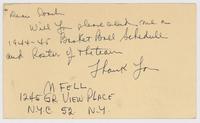 Dear Coach
Will you please send me a
1944-45 Basket Ball Schedule
and Roster of the team
Thank You
M FELL
1245 GR VIEW PLACE
N.Y.C 52 N.Y.